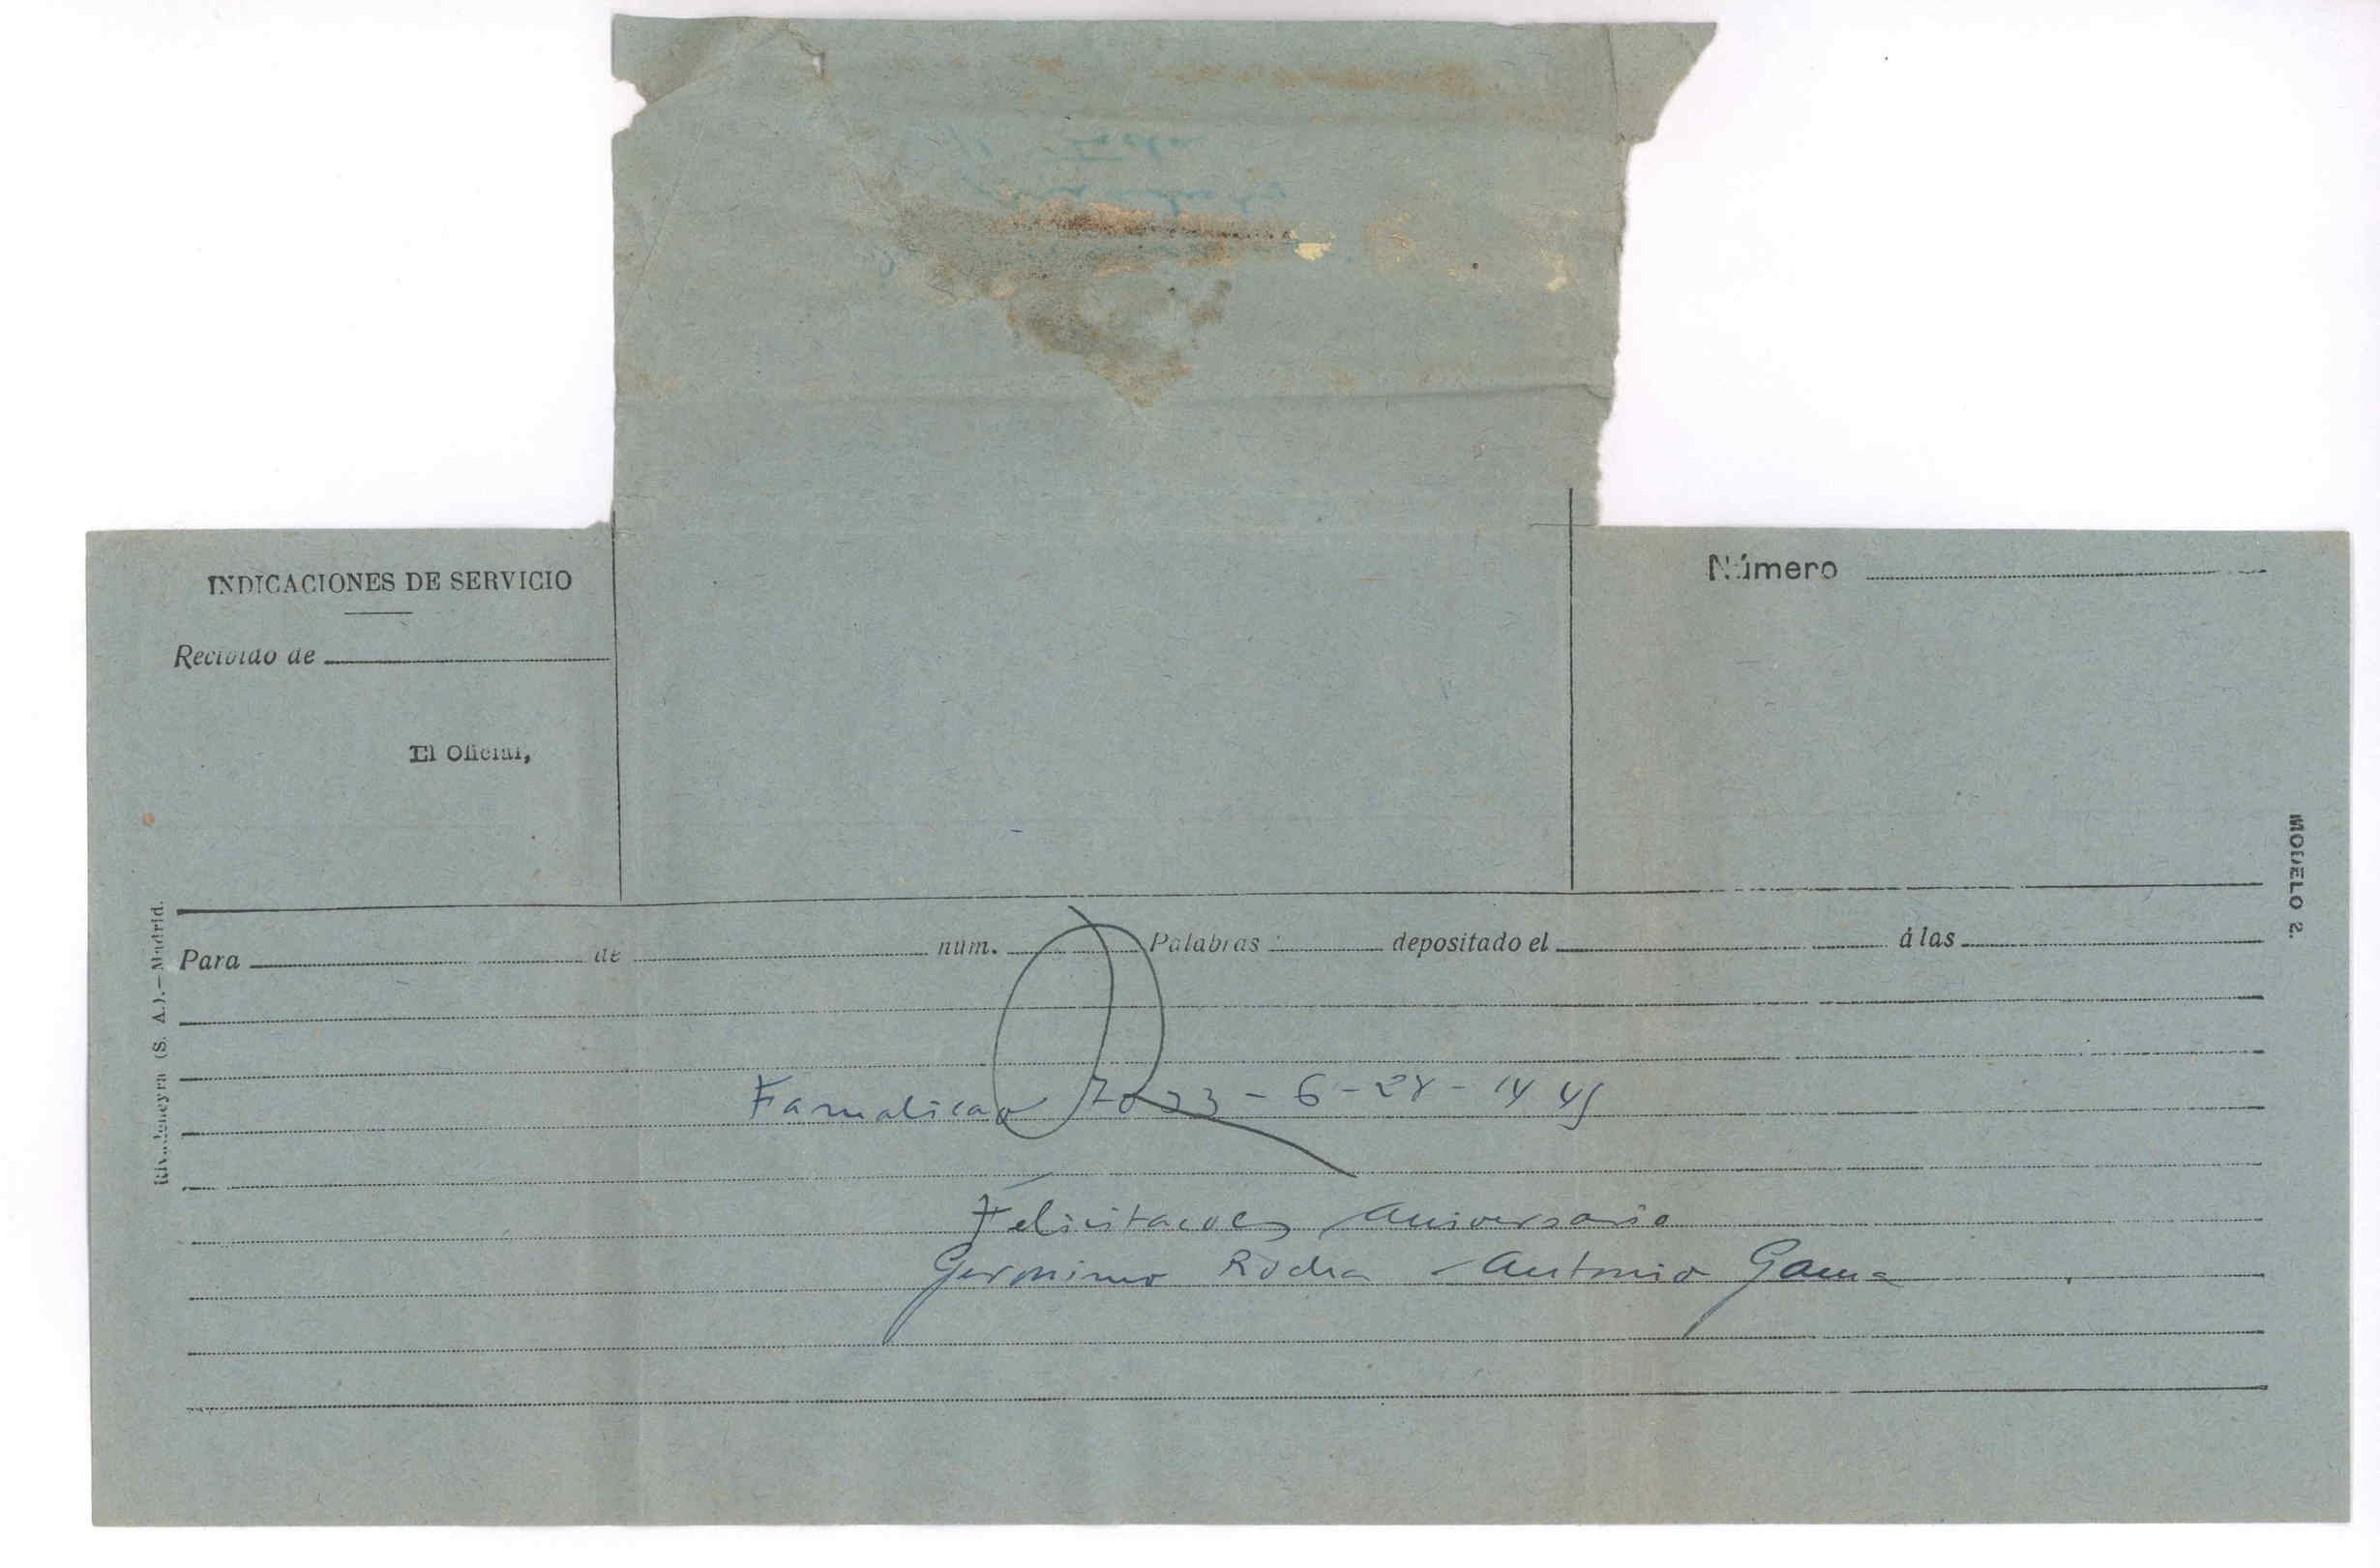 INDICACIONES DE SERVICIO
Recibido de
El Oficial,
Número
MODELO 2.
Rivadeneyra (S. A.).—Madrid.
Para de núm. Palabras depositado el á las
Famalicao 7023 - 6 - 28 - 14 45
Felicitacoes aniversario
Geronimo Rocha Antonio Gama